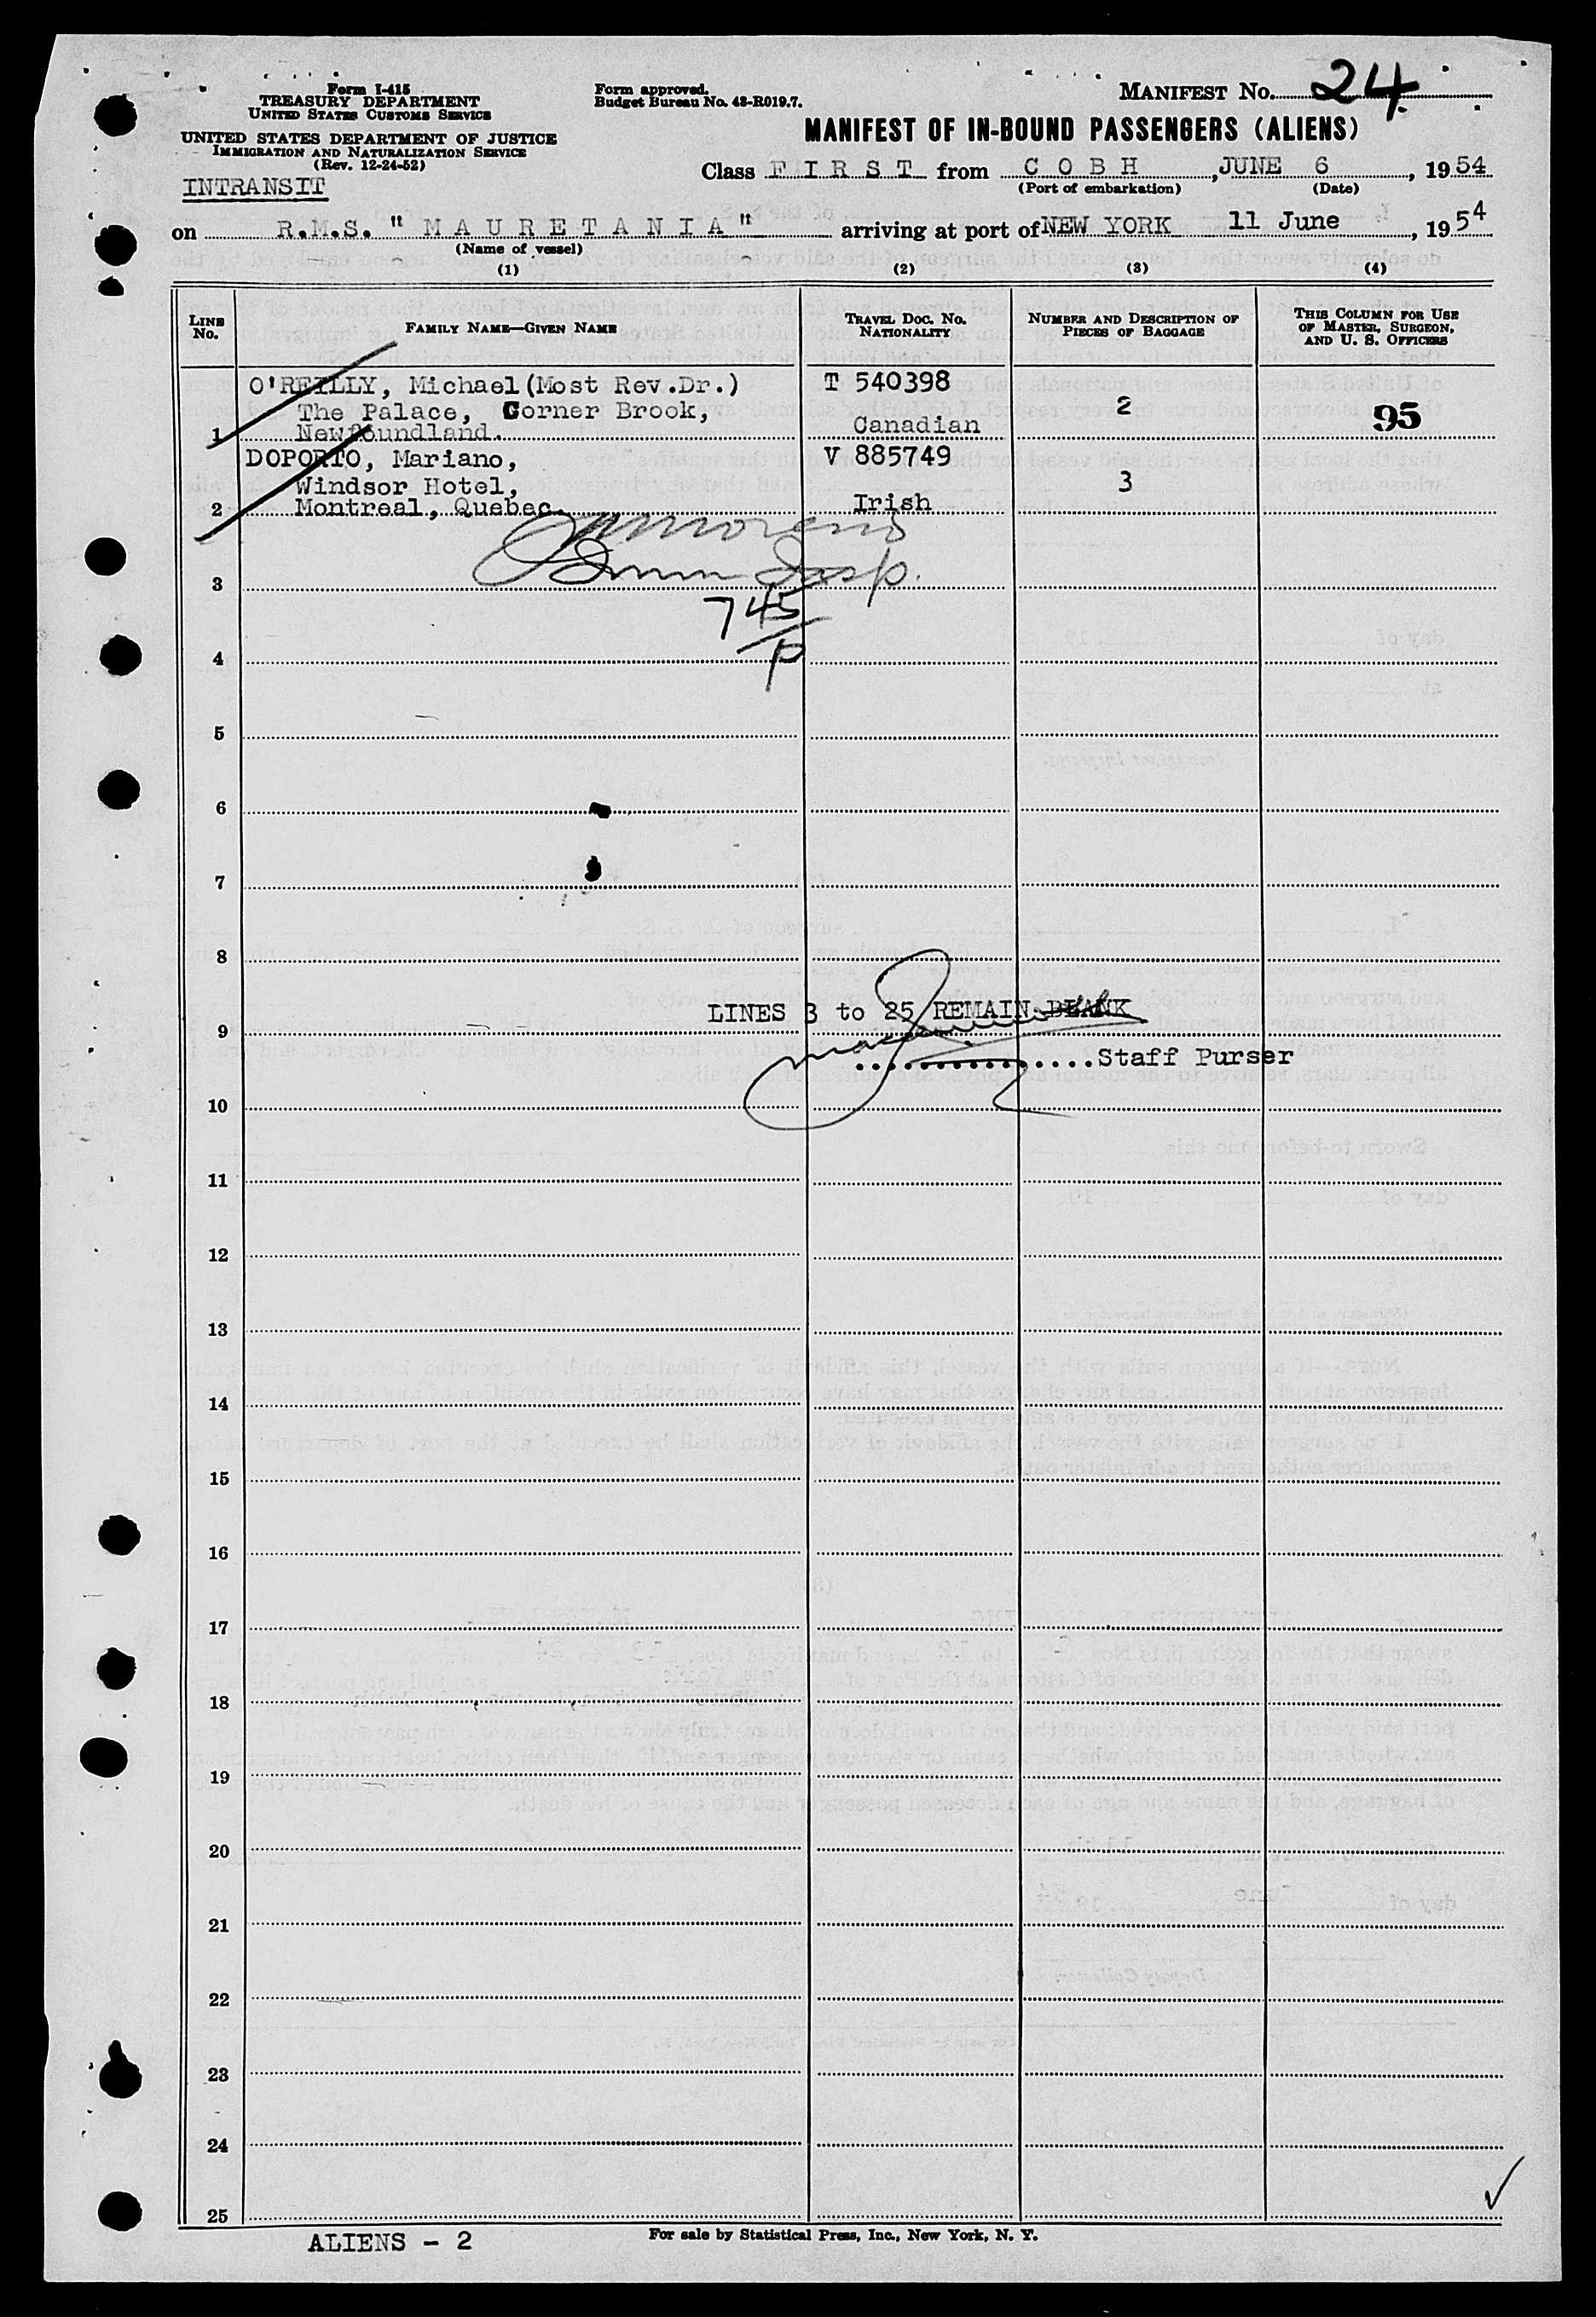 Form I-415
TREASURY DEPARTMENT
UNITED STATES CUSTOMS SERVICE
UNITED STATES DEPARTMENT OF JUSTICE
IMMIGRATION AND NATURALIZATION SERVICE
(Rev. 12-24-52)
INTRANSIT
Form approved.
Budget Bureau No. 43-R019.7.
MANIFEST No. 24
MANIFEST OF IN-BOUND PASSENGERS (ALIENS)
Class F I R S T from C O B H , JUNE 6 , 1954
(Port of embarkation) (Date)
on R.M.S. " M A U R E T A N I A " arriving at port of NEW YORK 11 June , 1954
(Name of vessel)
(1) (2) (3) (4)
LINE No. FAMILY NAME—GIVEN NAME TRAVEL DOC. NO. NATIONALITY NUMBER AND DESCRIPTION OF PIECES OF BAGGAGE THIS COLUMN FOR USE OF MASTER, SURGEON, AND U. S. OFFICERS
O'REILLY, Michael (Most Rev.Dr.) T 540398
The Palace, Corner Brook, 2 95
1 Newfoundland. Canadian
DOPORTO, Mariano, V 885749
Windsor Hotel, 3
2 Montreal, Quebec. Irish
3
745
4
p
5
6
7
8
LINES 3 to 25 REMAIN BLANK
9
Staff Purser
10
11
12
13
14
15
16
17
18
19
20
21
22
23
24
25
ALIENS - 2
For sale by Statistical Press, Inc., New York, N. Y.